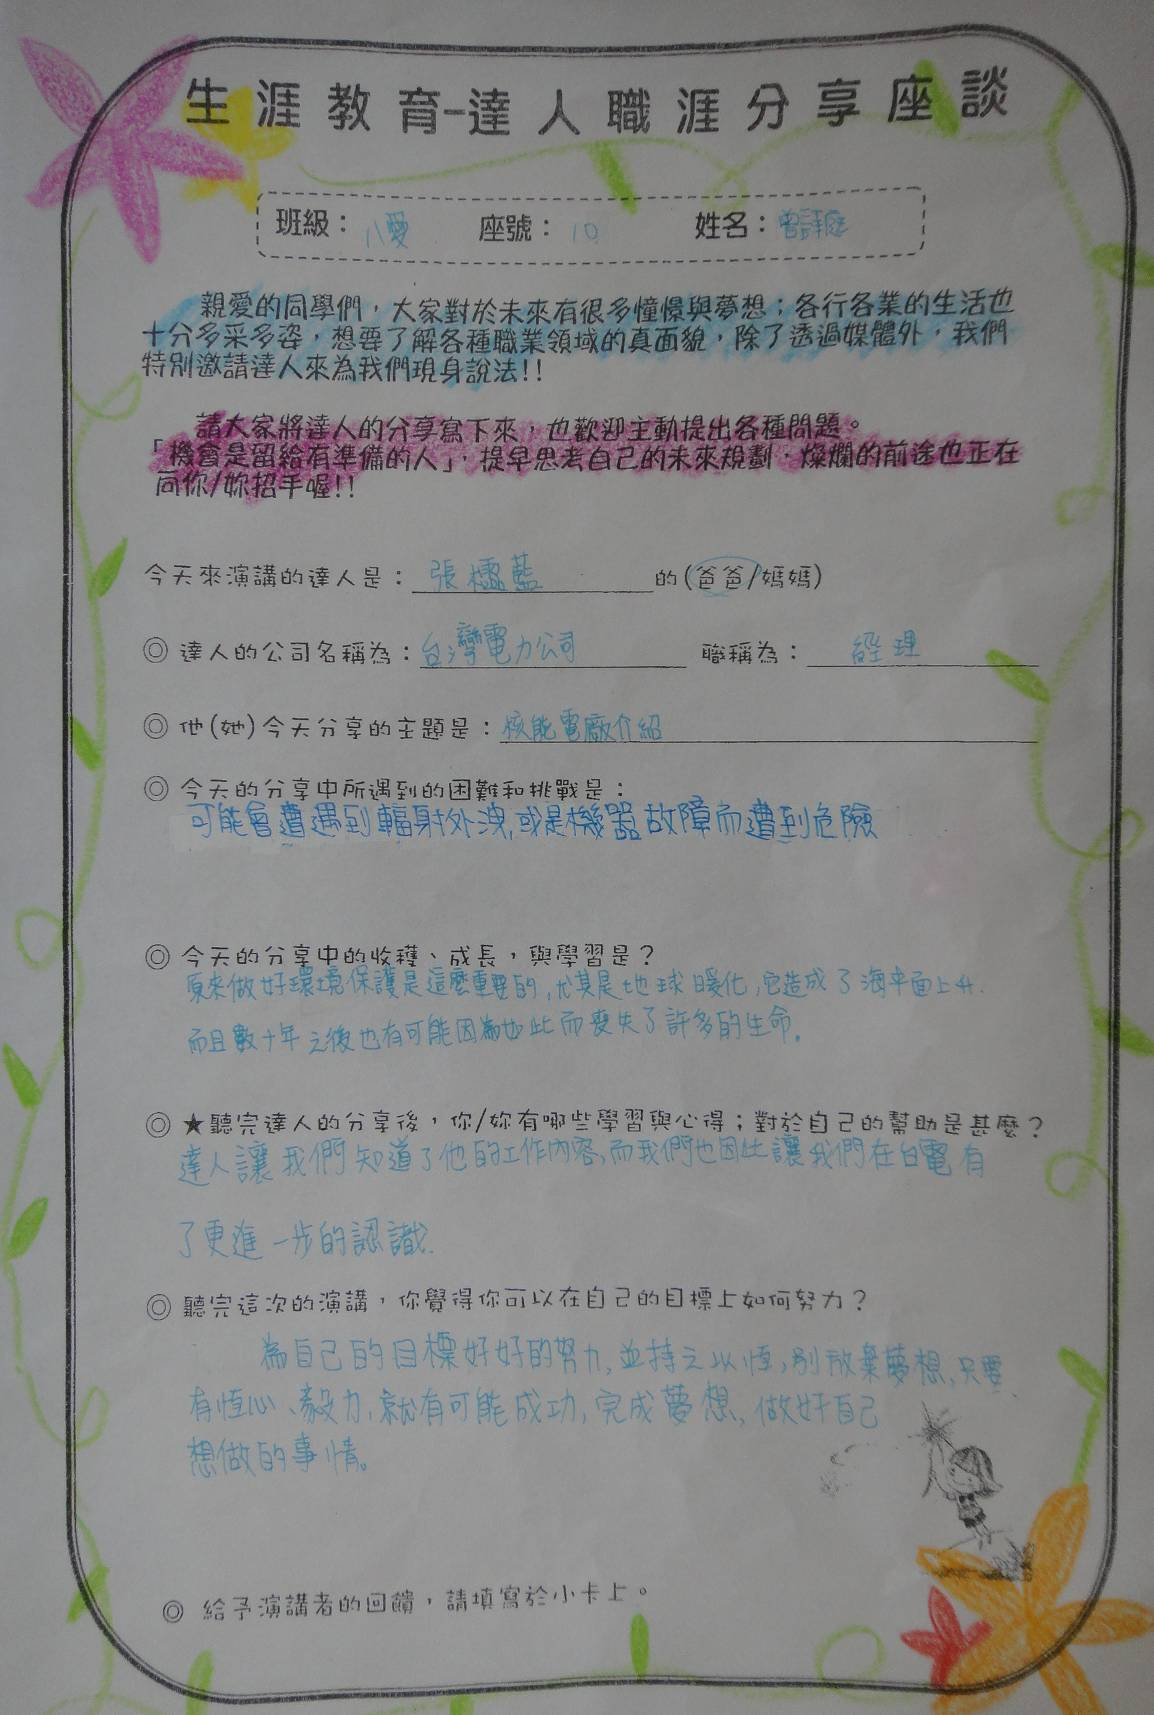 生涯教育-達人職涯分享座談
班級：八愛 座號：10 姓名：曾詩庭
親愛的同學們，大家對於未來有很多憧憬與夢想；各行各業的生活也
十分多采多姿，想要了解各種職業領域的真面貌，除了透過媒體外，我們
特別邀請達人來為我們現身說法!!
請大家將達人的分享寫下來，也歡迎主動提出各種問題。
「機會是留給有準備的人」，提早思考自己的未來規劃，燦爛的前途也正在
向你/妳招手喔!!
今天來演講的達人是：張 藍 的(爸爸/媽媽)
◎ 達人的公司名稱為：台灣電力公司 職稱為：經理
◎ 他(她)今天分享的主題是：核能電廠介紹
◎ 今天的分享中所遇到的困難和挑戰是：
可能會遭遇到輻射外洩,或是機器故障而遭到危險
◎ 今天的分享中的收穫、成長，與學習是？
原來做好環境保護是這麼重要的,尤其是地球暖化,它造成了海平面上升.
而且數十年之後也有可能因為如此而喪失了許多的生命.
◎ ★聽完達人的分享後，你/妳有哪些學習與心得；對於自己的幫助是甚麼？
達人讓我們知道了他的工作內容,而我們也因此讓我們在台電有
了更進一步的認識.
◎ 聽完這次的演講，你覺得你可以在自己的目標上如何努力？
為自己的目標好好的努力,並持之以恆,別放棄夢想,只要
有恆心、毅力,就有可能成功,完成夢想,做好自己
想做的事情。
◎ 給予演講者的回饋，請填寫於小卡上。